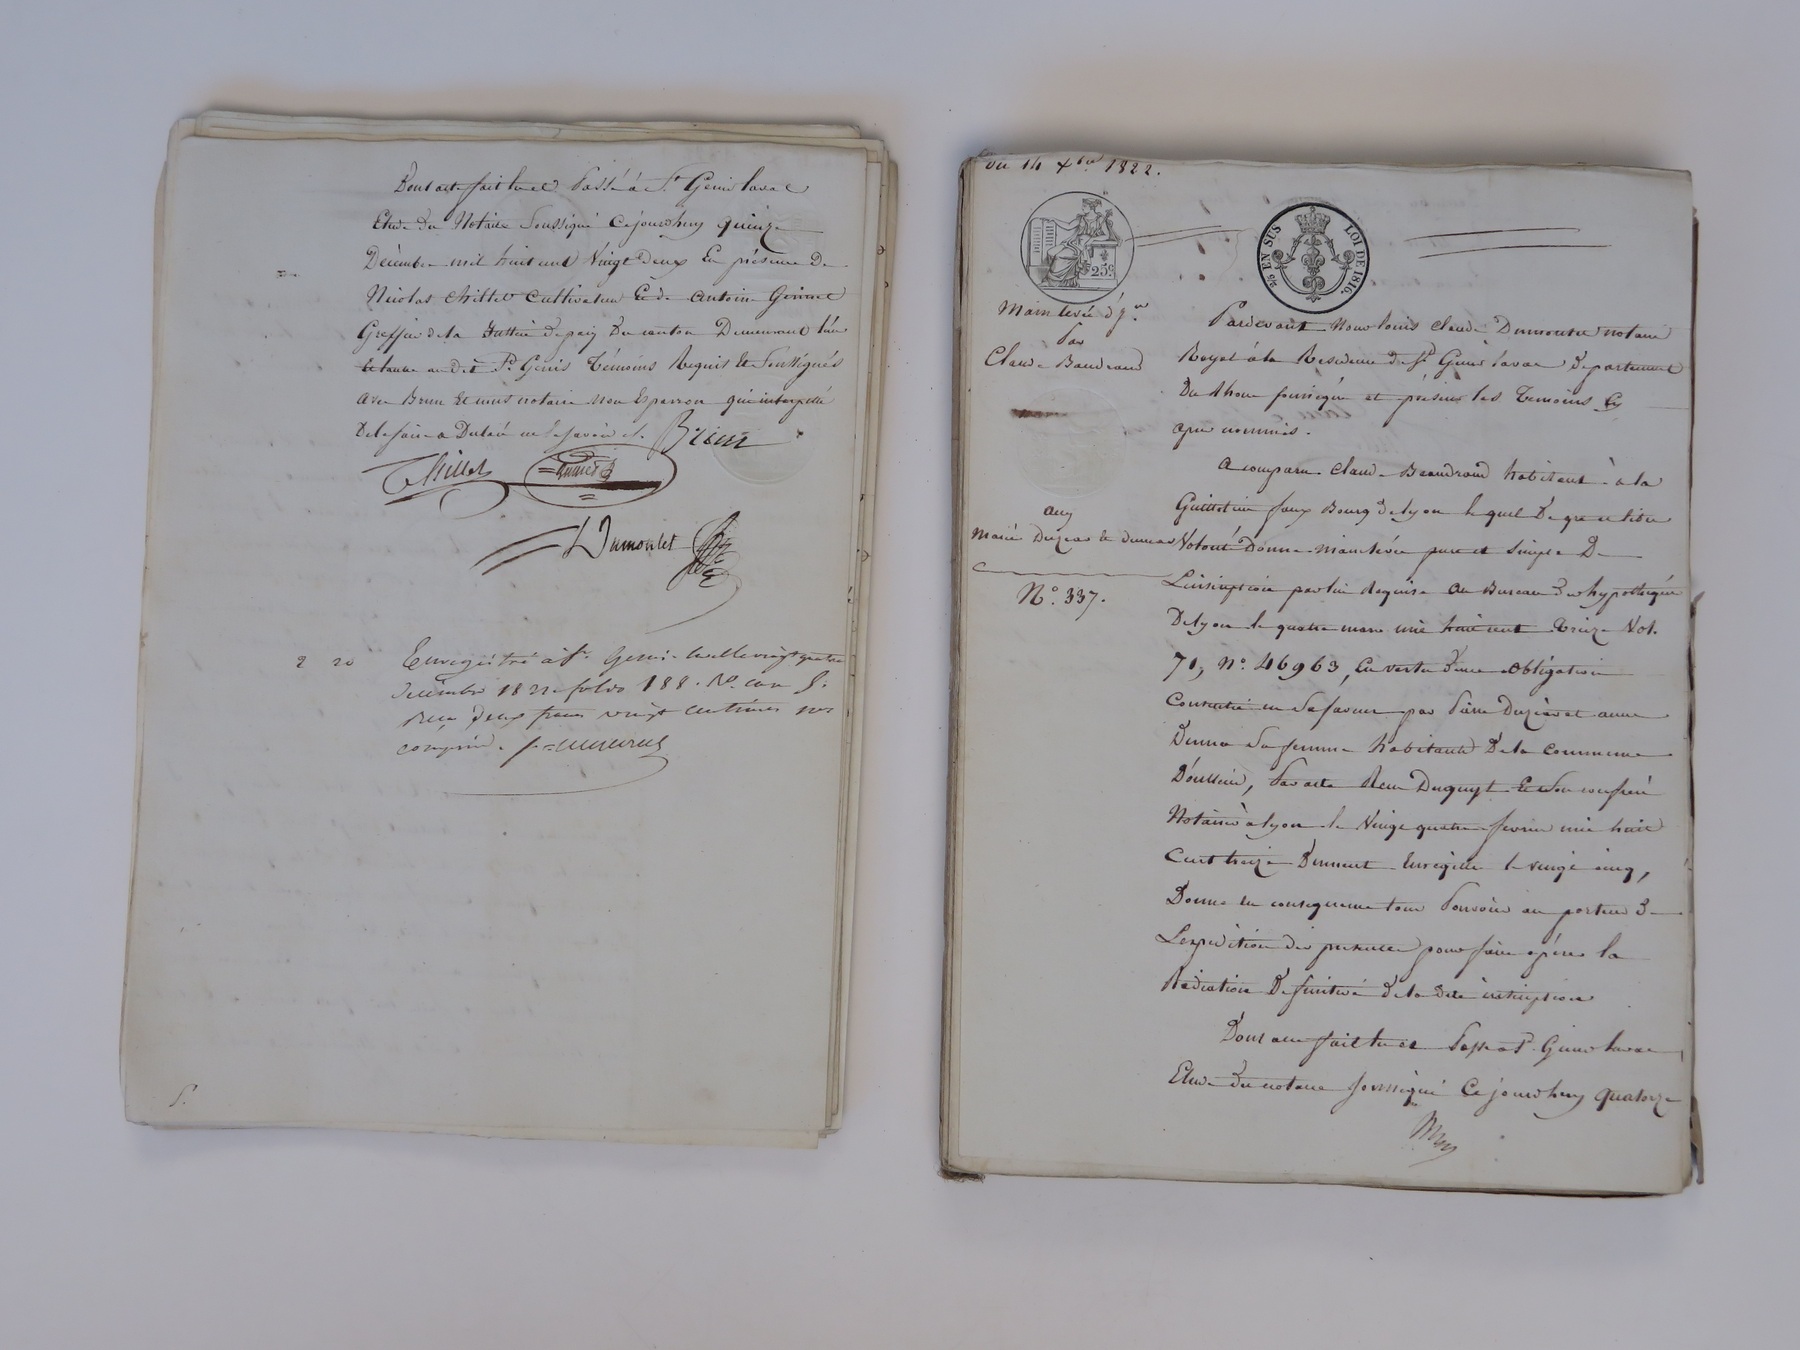 Dont acte fait lu et Passé à St Genis laval
Etude du Notaire Soussigné Cejourdhuy quinze
Décembre mil huit cent Vingt deux En présence De
Nicolas Chillet Cultivateur Et de Antoine
Greffier de la Justice de paix Du canton Demeurant l'un
et l'autre au dit St Genis Témoins Requis Et Soussignés
avec Brun Et nous notaire non Esparron qui interpellé
De le faire a Déclaré ne le savoir et. Brun
Chillet
Dumoulet
2 20 Enregistré à St Genis le vingt quatre
décembre 1822 folio 188. Ro. case 8.
Reçu deux francs vingt centimes
compris.
S.
Du 14 Xbre 1822.
25c
25c EN SUS LOI DE 1816.
Main levée d'
Par
Claude Baudrand
aux
Mariés Duzéas et
No. 337.
Pardevant Nous louis Claude Dumoulet notaire
Royal à la Residence de St Genis laval Département
Du Rhone soussigné et présens les Temoins Cy
après nommés.
A comparu Claude Beaudrand habitant à la
Guillotière faux Bourg de lyon lequel De gré et libre
Volonté Donne mainlevée pure et Simple De
L'inscription par lui Requise au Bureau des hypothèques
De lyon le quatre mars mil huit cent Treize Vol.
71, No. 46963, En vertu d'une obligation
Consentie en Sa faveur par Pierre et anne
Sa femme habitants De la commune
D'oullins, Par acte Reçu Duguyt Et Son confrère
Notaires à lyon le Vingt quatre fevrier mil huit
Cent treize Duement Enregistré le vingt cinq,
Donne en consequence tout Pouvoir au porteur De
L'expedition des presentes pour faire opérer la
Radiation Definitive De la dite inscription
Dont acte fait lu et Passé a St Genis laval
Etude du notaire soussigné Cejourdhuy quatorze